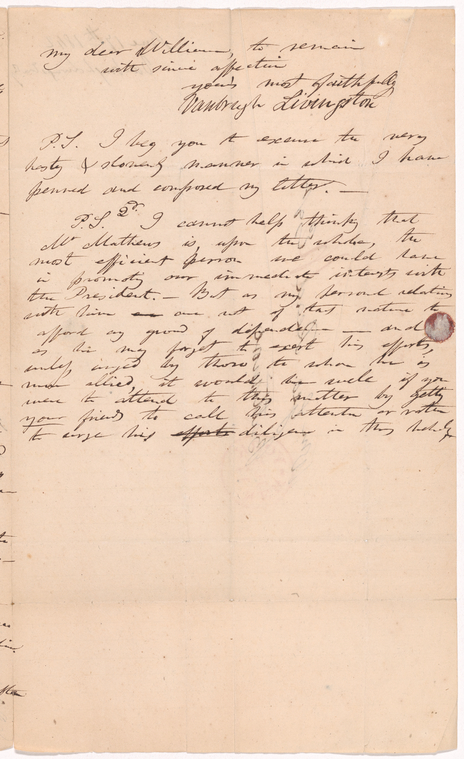 my dear William, to remain
with since affection
yours most faithfully
Vanbrugh Livingston
P.S. I beg you to excuse the very
hasty & slovenly manner in which I have
penned and composed my letter. —
P.S. 2d. I cannot help thinking that
Mr Mathews is, upon the whole, the
most efficient person we could have
in promoting our immediate interests with
the President. — But as my personal relations
with him are not of that nature to
afford any ground of dependence — and
as he may forget to exert his efforts,
unless urged by those to whom he is
more allied, it would be well if you
were to attend to this matter by getting
your friends to call his attention or rather
to urge his efforts diligence in this